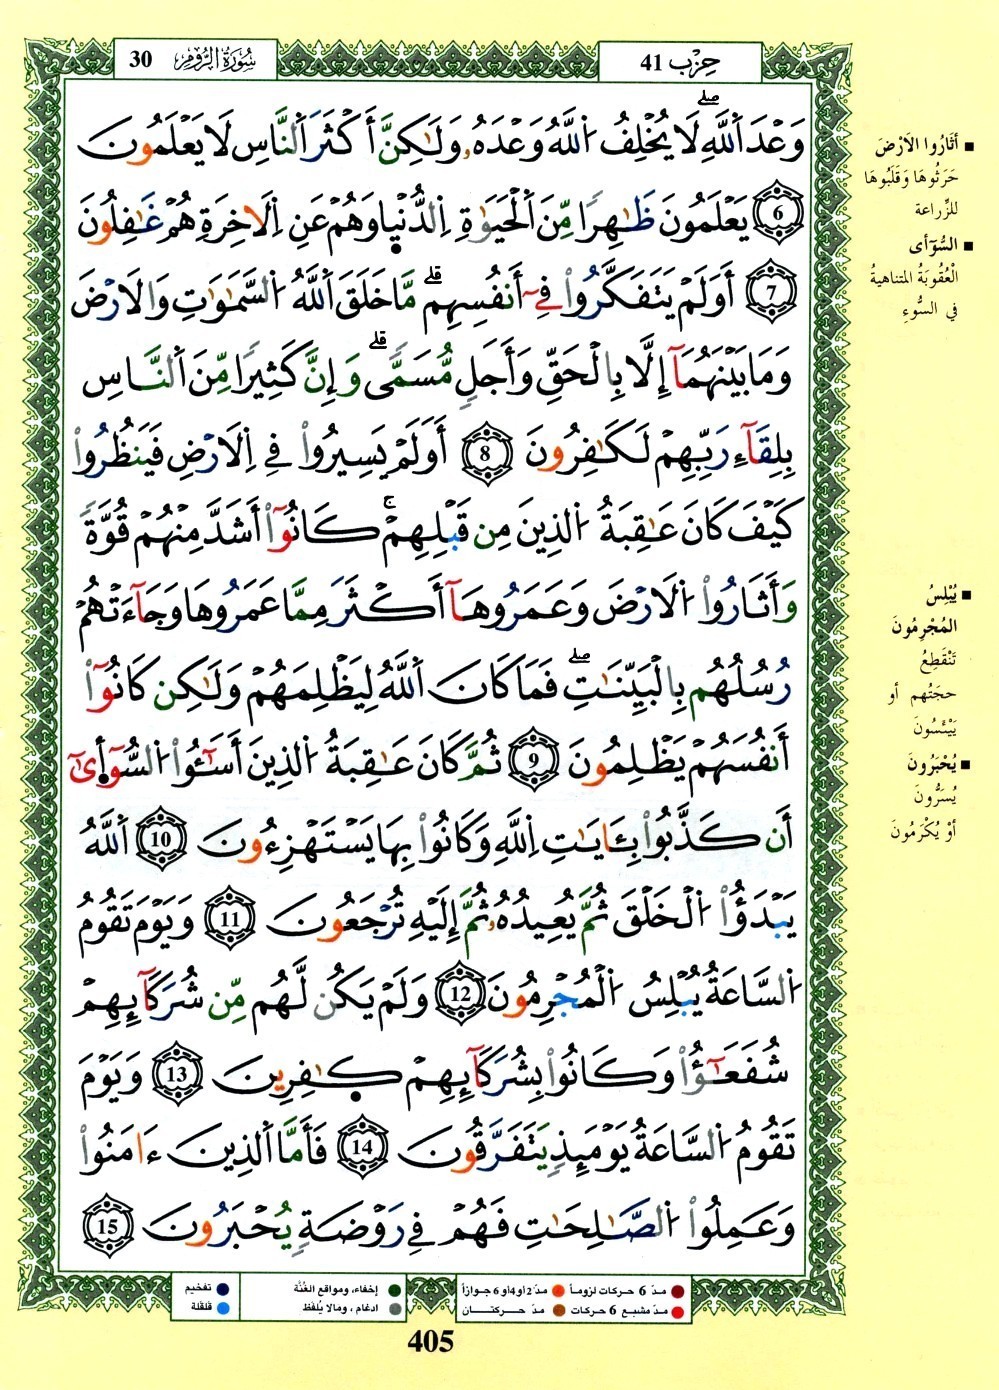 سُورَةُ الرُّومِ 30
حِزْب 41
وَعْدَ اَ۬للَّهِۖ لَا يُخْلِفُ اُ۬للَّهُ وَعْدَهُۥ وَلَٰكِنَّ أَكْثَرَ اَ۬لنَّاسِ لَا يَعْلَمُونَ
6 يَعْلَمُونَ ظَٰهِراٗ مِّنَ اَ۬لْحَيَوٰةِ اِ۬لدُّنْي۪ا وَهُمْ عَنِ اِ۬لَاخِرَةِ هُمْ غَٰفِلُونَ
7 أَوَلَمْ يَتَفَكَّرُواْ فِےٓ أَنفُسِهِمۗ مَّا خَلَقَ اَ۬للَّهُ اُ۬لسَّمَٰوَٰتِ وَالَارْضَ
وَمَا بَيْنَهُمَآ إِلَّا بِالْحَقِّ وَأَجَلٖ مُّسَمّيٗۗ وَإِنَّ كَثِيراٗ مِّنَ اَ۬لنَّاسِ
بِلِقَآءِ رَبِّهِمْ لَكَٰفِرُونَ 8 أَوَلَمْ يَسِيرُواْ فِے اِ۬لَارْضِ فَيَنظُرُواْ
كَيْفَ كَانَ عَٰقِبَةُ اُ۬لذِينَ مِن قَبْلِهِمْۚ كَانُوٓاْ أَشَدَّ مِنْهُمْ قُوَّةٗ
وَأَثَارُواْ اُ۬لَارْضَ وَعَمَرُوهَآ أَكْثَرَ مِمَّا عَمَرُوهَا وَجَآءَتْهُمْ
رُسُلُهُم بِالْبَيِّنَٰتِۖ فَمَا كَانَ اَ۬للَّهُ لِيَظْلِمَهُمْ وَلَٰكِن كَانُوٓاْ
أَنفُسَهُمْ يَظْلِمُونَ 9 ثُمَّ كَانَ عَٰقِبَةُ اُ۬لذِينَ أَسَٰٓـُٔواْ اُ۬لسُّوٓأ۪ىٰٓ
أَن كَذَّبُواْ بِـَٔايَٰتِ اِ۬للَّهِ وَكَانُواْ بِهَا يَسْتَهْزِءُونَ 10 اَ۬للَّهُ
يَبْدَؤُاْ اُ۬لْخَلْقَ ثُمَّ يُعِيدُهُۥ ثُمَّ إِلَيْهِ تُرْجَعُونَ 11 وَيَوْمَ تَقُومُ
اُ۬لسَّاعَةُ يُبْلِسُ اُ۬لْمُجْرِمُونَ 12 وَلَمْ يَكُن لَّهُم مِّن شُرَكَآئِهِمْ
شُفَعَٰٓؤُاْ وَكَانُواْ بِشُرَكَآئِهِمْ كٰ۪فِرِينَ 13 وَيَوْمَ
تَقُومُ اُ۬لسَّاعَةُ يَوْمَئِذٖ يَتَفَرَّقُونَ 14 فَأَمَّا اَ۬لذِينَ ءَامَنُواْ
وَعَمِلُواْ اُ۬لصَّٰلِحَٰتِ فَهُمْ فِے رَوْضَةٖ يُحْبَرُونَ 15
■ أَثَارُوا الاَرْضَ
حَرَثُوهَا وَقَلَبُوهَا
للزِّراعة
■ السُّوٓأى
الْعُقُوبَةُ المتناهيةُ
في السُّوءِ
■ يُبْلِسُ
المُجْرِمُونَ
تَنْقَطِعُ
حجتُهم أو
يَيْئَسُونَ
■ يُحْبَرُونَ
يُسَرُّونَ
أوْ يُكْرَمُونَ
مدّ 6 حركات لزوماً مدّ 2 أو 4 أو 6 جوازاً
مدّ مشبع 6 حركات مدّ حركتان
إخفاء، ومواقع الغُنَّة
ادغام ، ومالا يُلفَظ
تفخيم
قلقلة
405